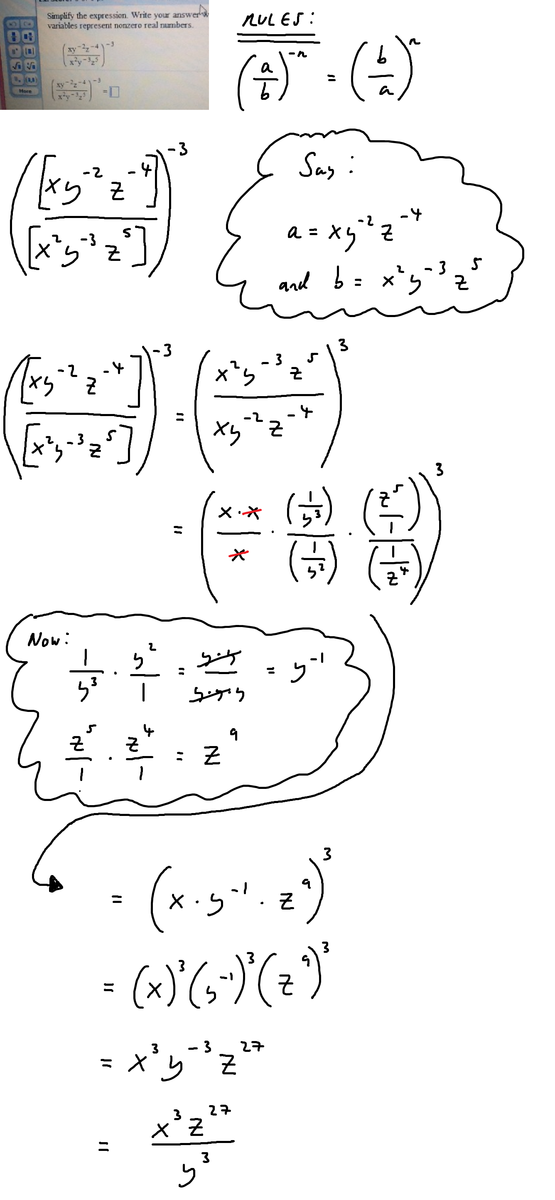 Simplify the expression. Write your answer
variables represent nonzero real numbers.
(xy^-2z^-4 / x^2y^-3z^5)^-3
(xy^-2z^-4 / x^2y^-3z^5)^-3 = □
RULES:
(a/b)^-n = (b/a)^n
([xy^-2 z^-4] / [x^2 y^-3 z^5])^-3
Say:
a = xy^-2 z^-4
and b = x^2 y^-3 z^5
([xy^-2 z^-4] / [x^2 y^-3 z^5])^-3 = (x^2 y^-3 z^5 / xy^-2 z^-4)^3
= (x·x / x · (1/y^3) / (1/y^2) · (z^5/1) / (1/z^4))^3
Now:
1/y^3 · y^2/1 = y·y / y·y·y = y^-1
z^5/1 · z^4/1 = z^9
= (x · y^-1 · z^9)^3
= (x)^3 (y^-1)^3 (z^9)^3
= x^3 y^-3 z^27
= x^3 z^27 / y^3